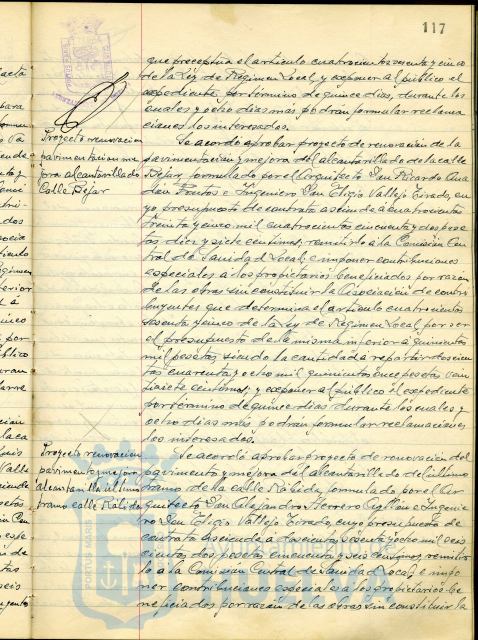 117
que preceptúa el artículo cuatrocientos sesenta y cinco
de la Ley de Régimen Local, y exponer al público el
expediente por término de quince días, durante los
cuales y ocho días más podrán formular reclama
ciones los interesados.
Proyecto renovación
pavimentación me
jora alcantarillado
Calle Bejar
Se acordó aprobar proyecto de renovación de la
pavimentación y mejora del alcantarillado de la calle
Bejar, formulado por el Arquitecto Don Ricardo
e Ingeniero Don Eligio Vallejo Tirado, cu
yo presupuesto de contrata asciende a cuatrocientas
treinta y cinco mil cuatrocientas cincuenta y dos pese
tas diez y siete céntimos; remitirlo a la Comisión Cen
tral de Sanidad Local; e imponer contribuciones
especiales a los propietarios beneficiados por razón
de las obras sin constituir la Asociación de contri
buyentes que determina el artículo cuatrocientos
sesenta y cinco de la Ley de Régimen Local, por ser
el presupuesto de la misma inferior a quinientas
mil pesetas, siendo la cantidad a repartir doscien
tas cuarenta y ocho mil quinientas once pesetas vein
tisiete céntimos; y exponer al público el expediente
por término de quince días durante los cuales y
ocho días más podrán formular reclamaciones
los interesados.
Proyecto renovación
pavimento mejora
alcantarilla último
tramo calle Rábida
Se acordó aprobar proyecto de renovación del
pavimento y mejora del alcantarillado del último
tramo de la calle Rábida, formulado por el Ar
quitecto Don Alejandro Herrero e Ingenie
ro Don Eligio Vallejo Tirado, cuyo presupuesto de
contrata asciende a doscientas sesenta y ocho mil seis
cientas dos pesetas cincuenta y seis céntimos, remitir
lo a la Comisión Central de Sanidad Local; e impo
ner contribuciones especiales a los propietarios be
neficiados por razón de las obras sin constituir la